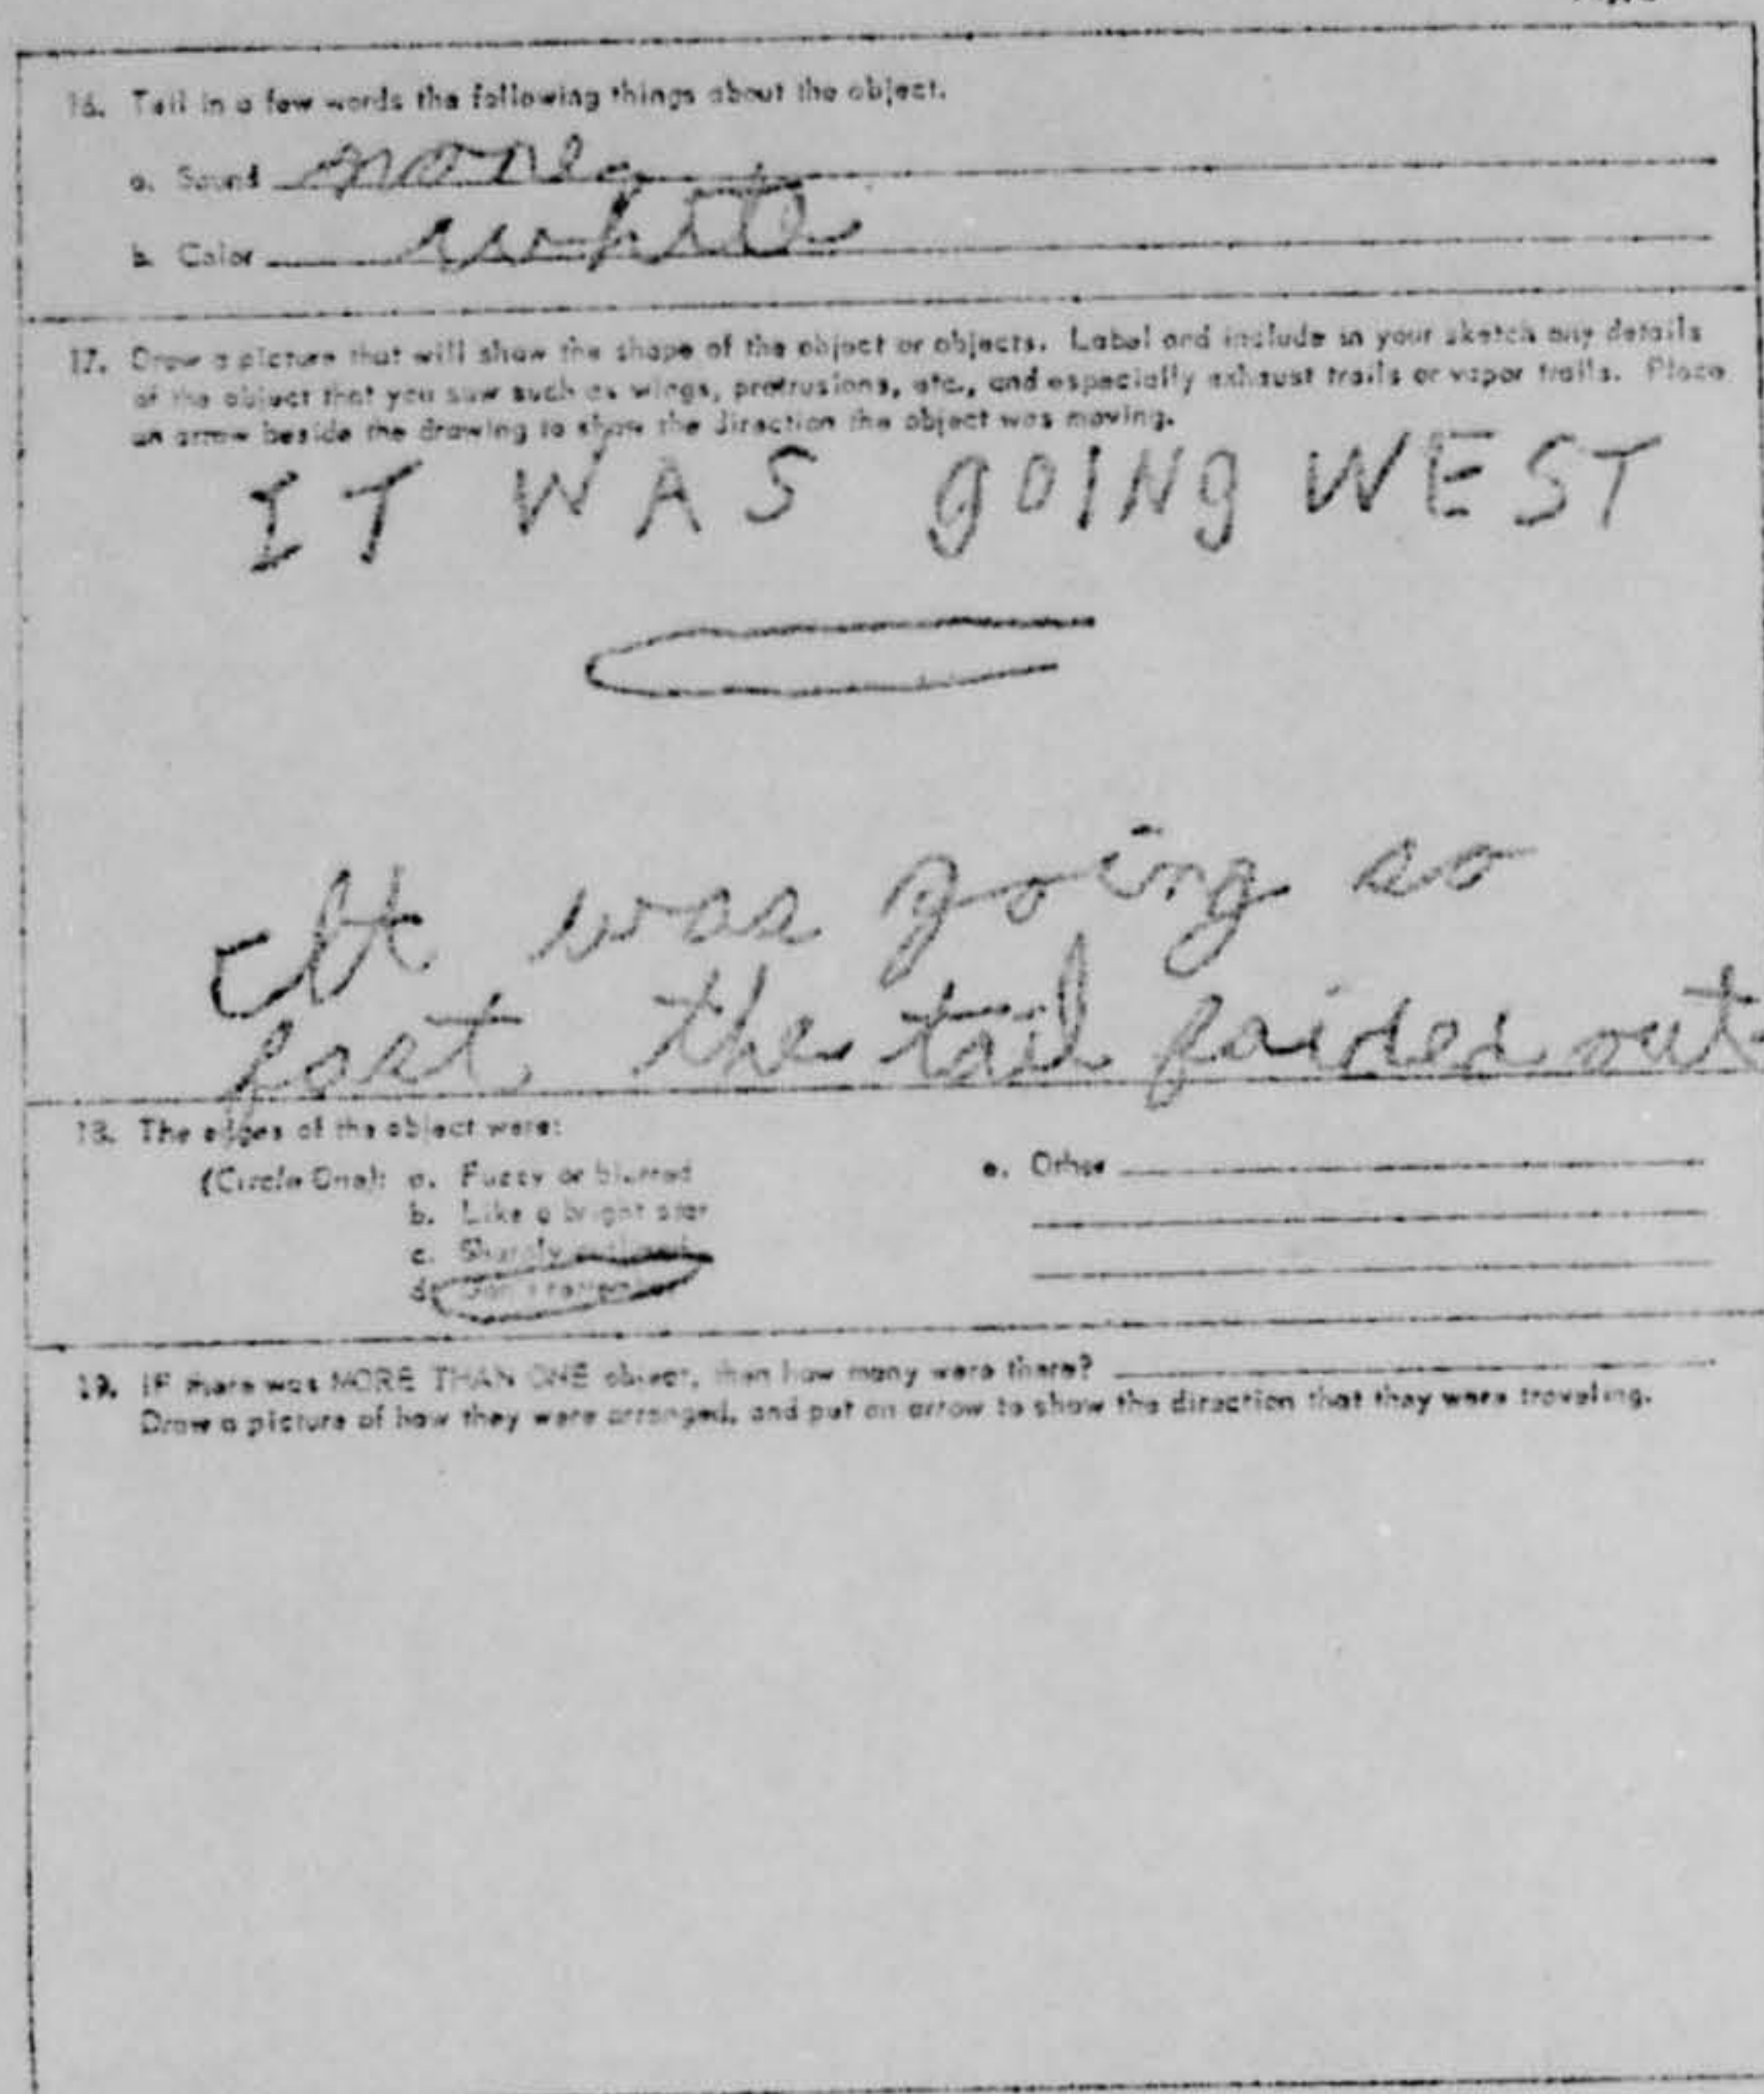 16. Tell in a few words the following things about the object.
a. Sound none
b. Color white
17. Draw a picture that will show the shape of the object or objects. Label and include in your sketch any details
of the object that you saw such as wings, protrusions, etc., and especially exhaust trails or vapor trails. Place
an arrow beside the drawing to show the direction the object was moving.
IT WAS gOINg WEST
It was going so
fast the tail faided out
18. The edges of the object were:
(Circle One): a. Fuzzy or blurred
b. Like a bright star
c. Sharply outlined
d. Don't remember
e. Other
19. IF there was MORE THAN ONE object, then how many were there?
Draw a picture of how they were arranged, and put an arrow to show the direction that they were traveling.